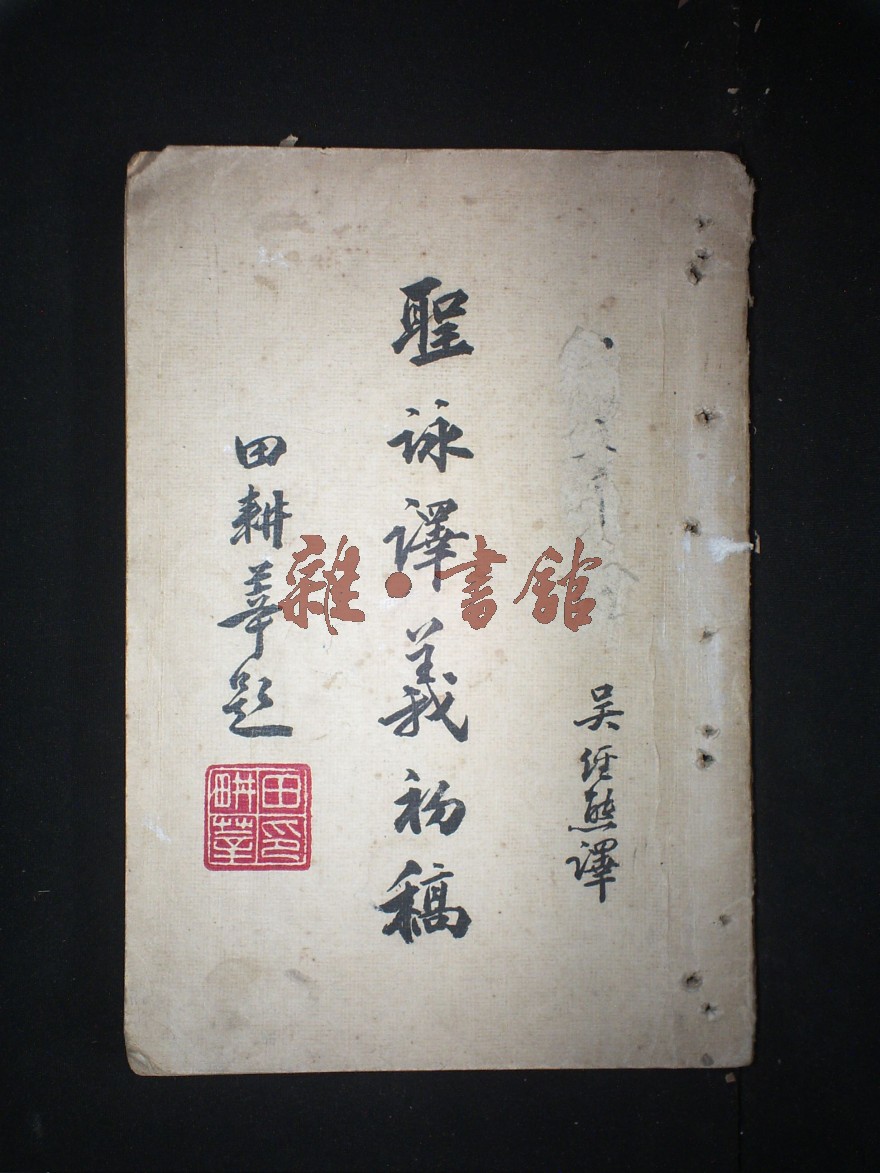 吴经熊譯
聖詠譯義初稿
田耕莘題
田耕莘印
雜·書館